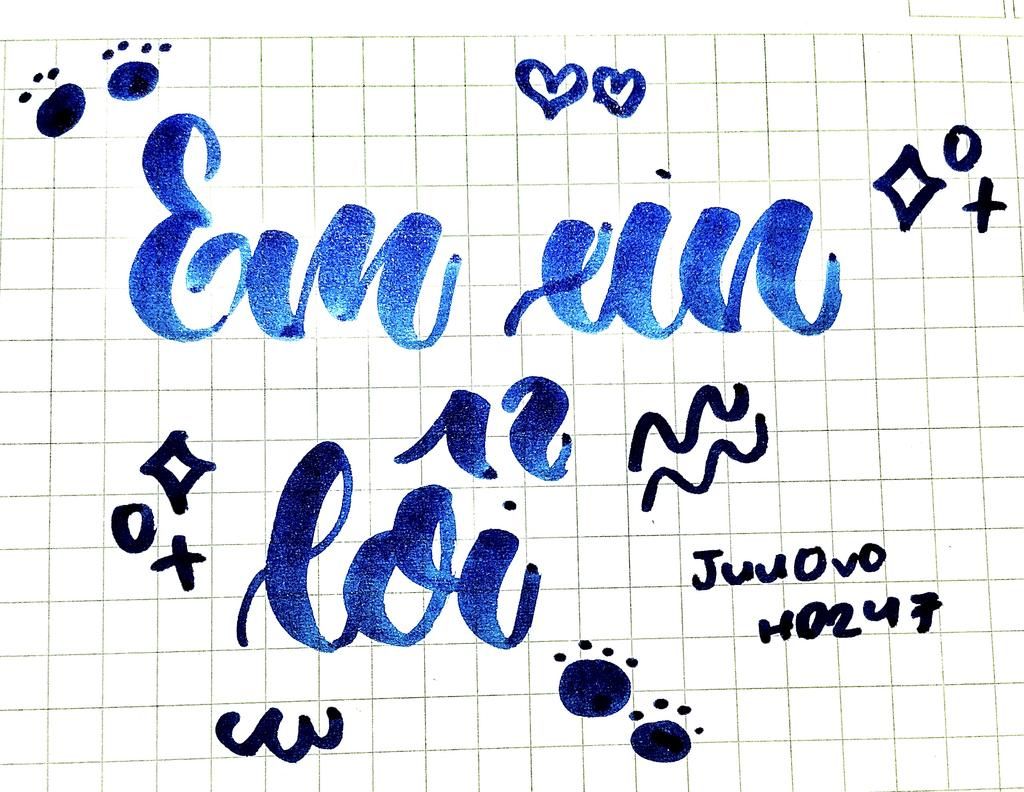 Em xin
lỗi
JuuOvo
HD247